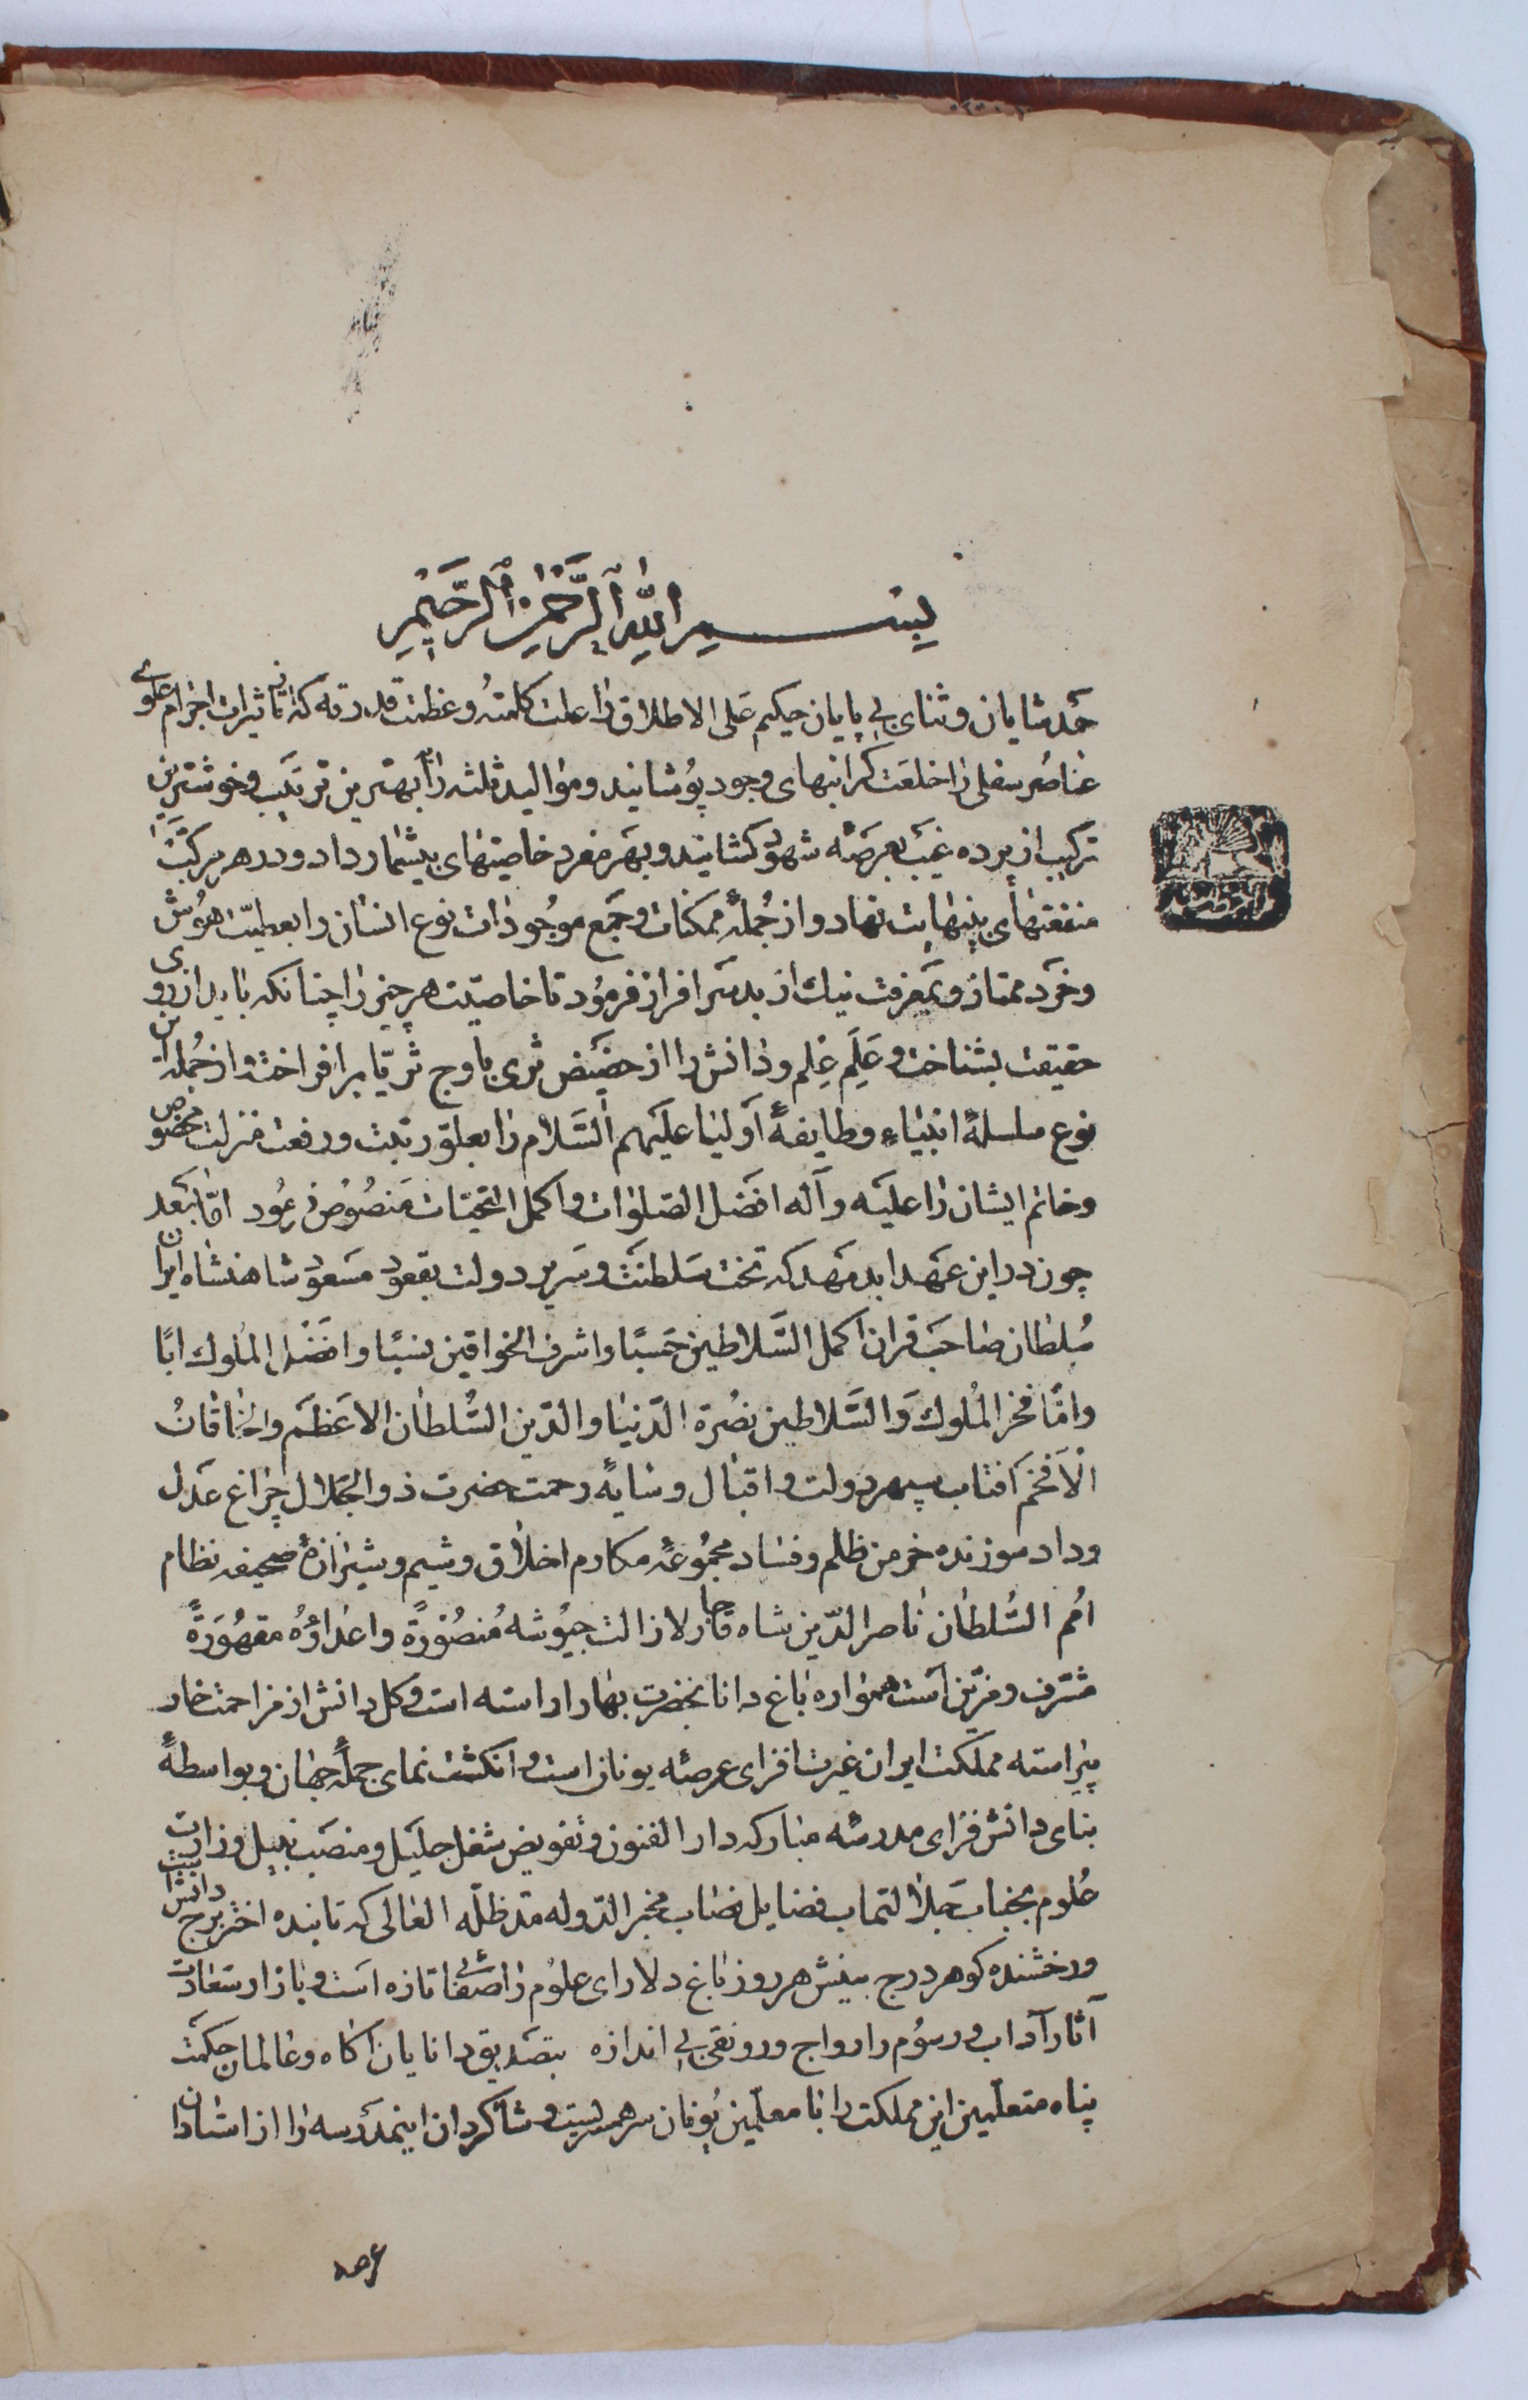 بسم الله الرحمن الرحیم
حمد شایان و ثنای بی پایان حکیم علی الاطلاق را علت کلمته و عظمت قدرته که تاثیرات اجرام علوی
عناصر سفلی را خلعت کرانبهای وجود پوشانید و موالید ثلثه را بهترین ترتیب و خوشترین
ترکیب از پرده غیب بعرصه شهود کشانید و بهر مفرد خاصیتهای بیشمار داد و در هر مرکب
منفعتهای بینهایت نهاد و از جمله ممکنات و جمع موجودات نوع انسان را بعطیت هوش
و خرد ممتاز و بمعرفت نیك از بد سرافراز فرمود تا خاصیت هر چیز را چنانکه باید از روی
حقیقت بشناخت و علم علم و دانش را از حضیض ثری باوج ثریا برافراخت و از جمله این
نوع سلسلهٔ انبیاء و طایفهٔ اولیا علیهم السلام را بعلو رتبت و رفعت منزلت مخصوص
و خاتم ایشان را علیه و آله افضل الصلوات و اکمل التحیات منصوص فرمود اما بعد
چون در این عهد ابد مهد که تخت سلطنت و سریر دولت بقعود مسعود شاهنشاه ایران
سلطان صاحب قران اکمل السلاطین حسبًا و اشرف الخواقین نسبًا و افضل الملوك ابًا
و امًا فخر الملوك و السلاطین نصرة الدنیا و الدین السلطان الاعظم و الخاقان
الافخم آفتاب سپهر دولت و اقبال و سایهٔ رحمت حضرت ذو الجلال چراغ عدل
و داد سوزنده خرمن ظلم و فساد مجموعهٔ مکارم اخلاق و شیم و شیرازهٔ صحیفه نظام
امم السلطان ناصر الدین شاه قاجار لا زالت جیوشه منصورةً و اعداؤه مقهورةً
مشرف و مزین است همواره باغ دانا بخضرت بهار اراسته است و کل دانش از مزاحمت خار
پیراسته مملکت ایران غیرت افزای عرصهٔ یونان است و انکشت نمای جملهٔ جهان و بواسطهٔ
بنای دانش فزای مدرسهٔ مبارکه دار الفنون و تفویض شغل جلیل و منصب نبیل وزارت
علوم بجناب جلالتماب فضایل نصاب مخبر الدوله مد ظله العالی که تابنده اختر برج دانش است
و رخشنده کوهر درج بینش هر روز باغ دلارای علوم را صفائی تازه است و بازار سعادت
آثار آداب و رسوم را رواج و رونقی بی اندازه بتصدیق دانایان آکاه و عالمان حکمت
پناه متعلمین این مملکت را با معلمین یونان سر همسریست و شاکردان اینمدرسه را از استادان